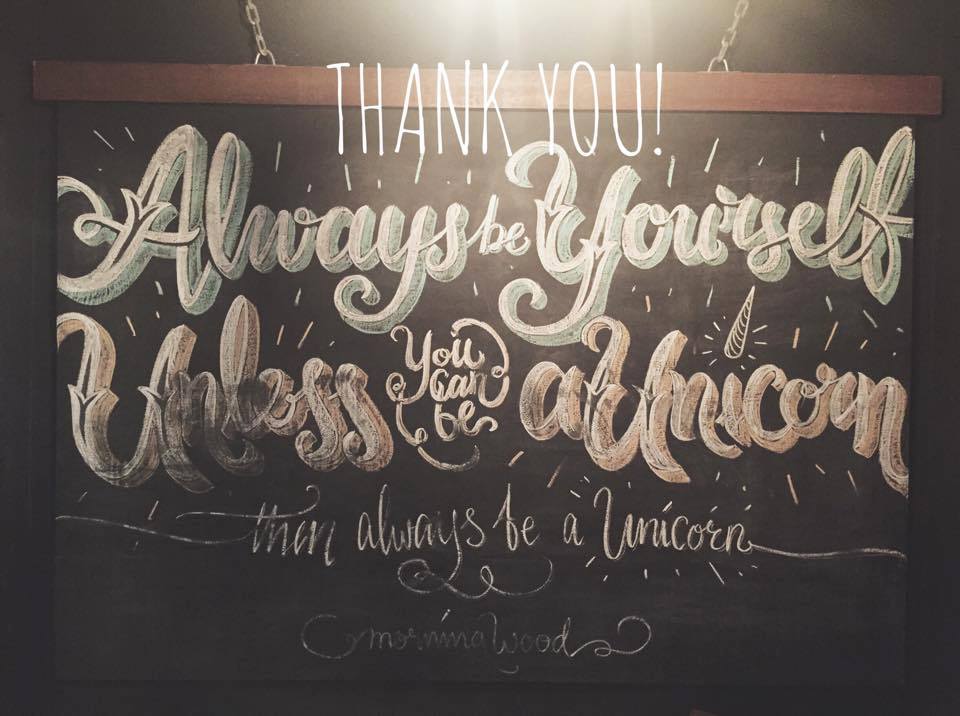 THANK YOU!
Always be Yourself
Unless You can be a Unicorn
then always be a Unicorn
morning Wood